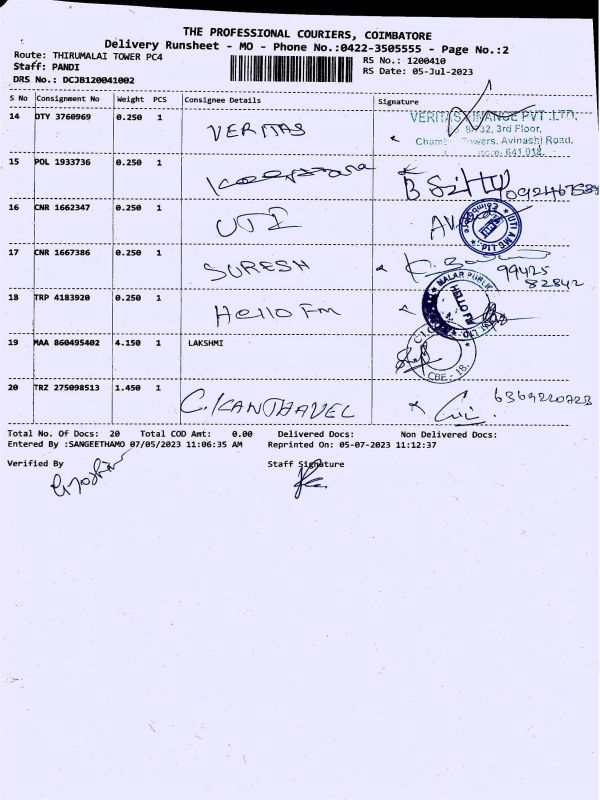 THE PROFESSIONAL COURIERS, COIMBATORE
Delivery Runsheet - MO - Phone No.:0422-3505555 - Page No.:2
Route: THIRUMALAI TOWER PC4
RS No.: 1200410
Staff: PANDI
RS Date: 05-Jul-2023
DRS No.: DCJB120041002
S No Consignment No Weight PCS Consignee Details Signature
14 DTY 3760969 0.250 1 VERITAS
VERITAS FINANCE PVT.LTD,
8/32, 3rd Floor,
Towers, Avinashi Road,
641 018.
15 POL 1933736 0.250 1
16 CNR 1662347 0.250 1 UTI
UTI AMC Coimbatore
17 CNR 1667386 0.250 1 SURESH
99425
82842
18 TRP 4183920 0.250 1 Hello Fm
MALAR PUBLIC
HELLO FM
19 MAA 860495402 4.150 1 LAKSHMI
CBE - 18.
20 TRZ 275098513 1.450 1 C.KANTHAVEL 6369220723
Total No. Of Docs: 20 Total COD Amt: 0.00 Delivered Docs: Non Delivered Docs:
Entered By :SANGEETHAMO 07/05/2023 11:06:35 AM Reprinted On: 05-07-2023 11:12:37
Verified By Staff Signature